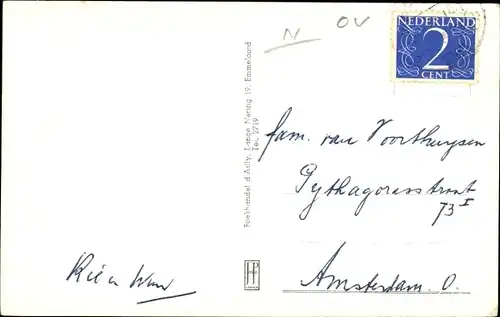 N OV
NEDERLAND
2
CENT
Boekhandel d'Ailly, Lange Nering 19, Emmeloord
Tel. 2719
fam. van Voorthuysen
Pythagorasstraat
73 I
Amsterdam. O.
Ria